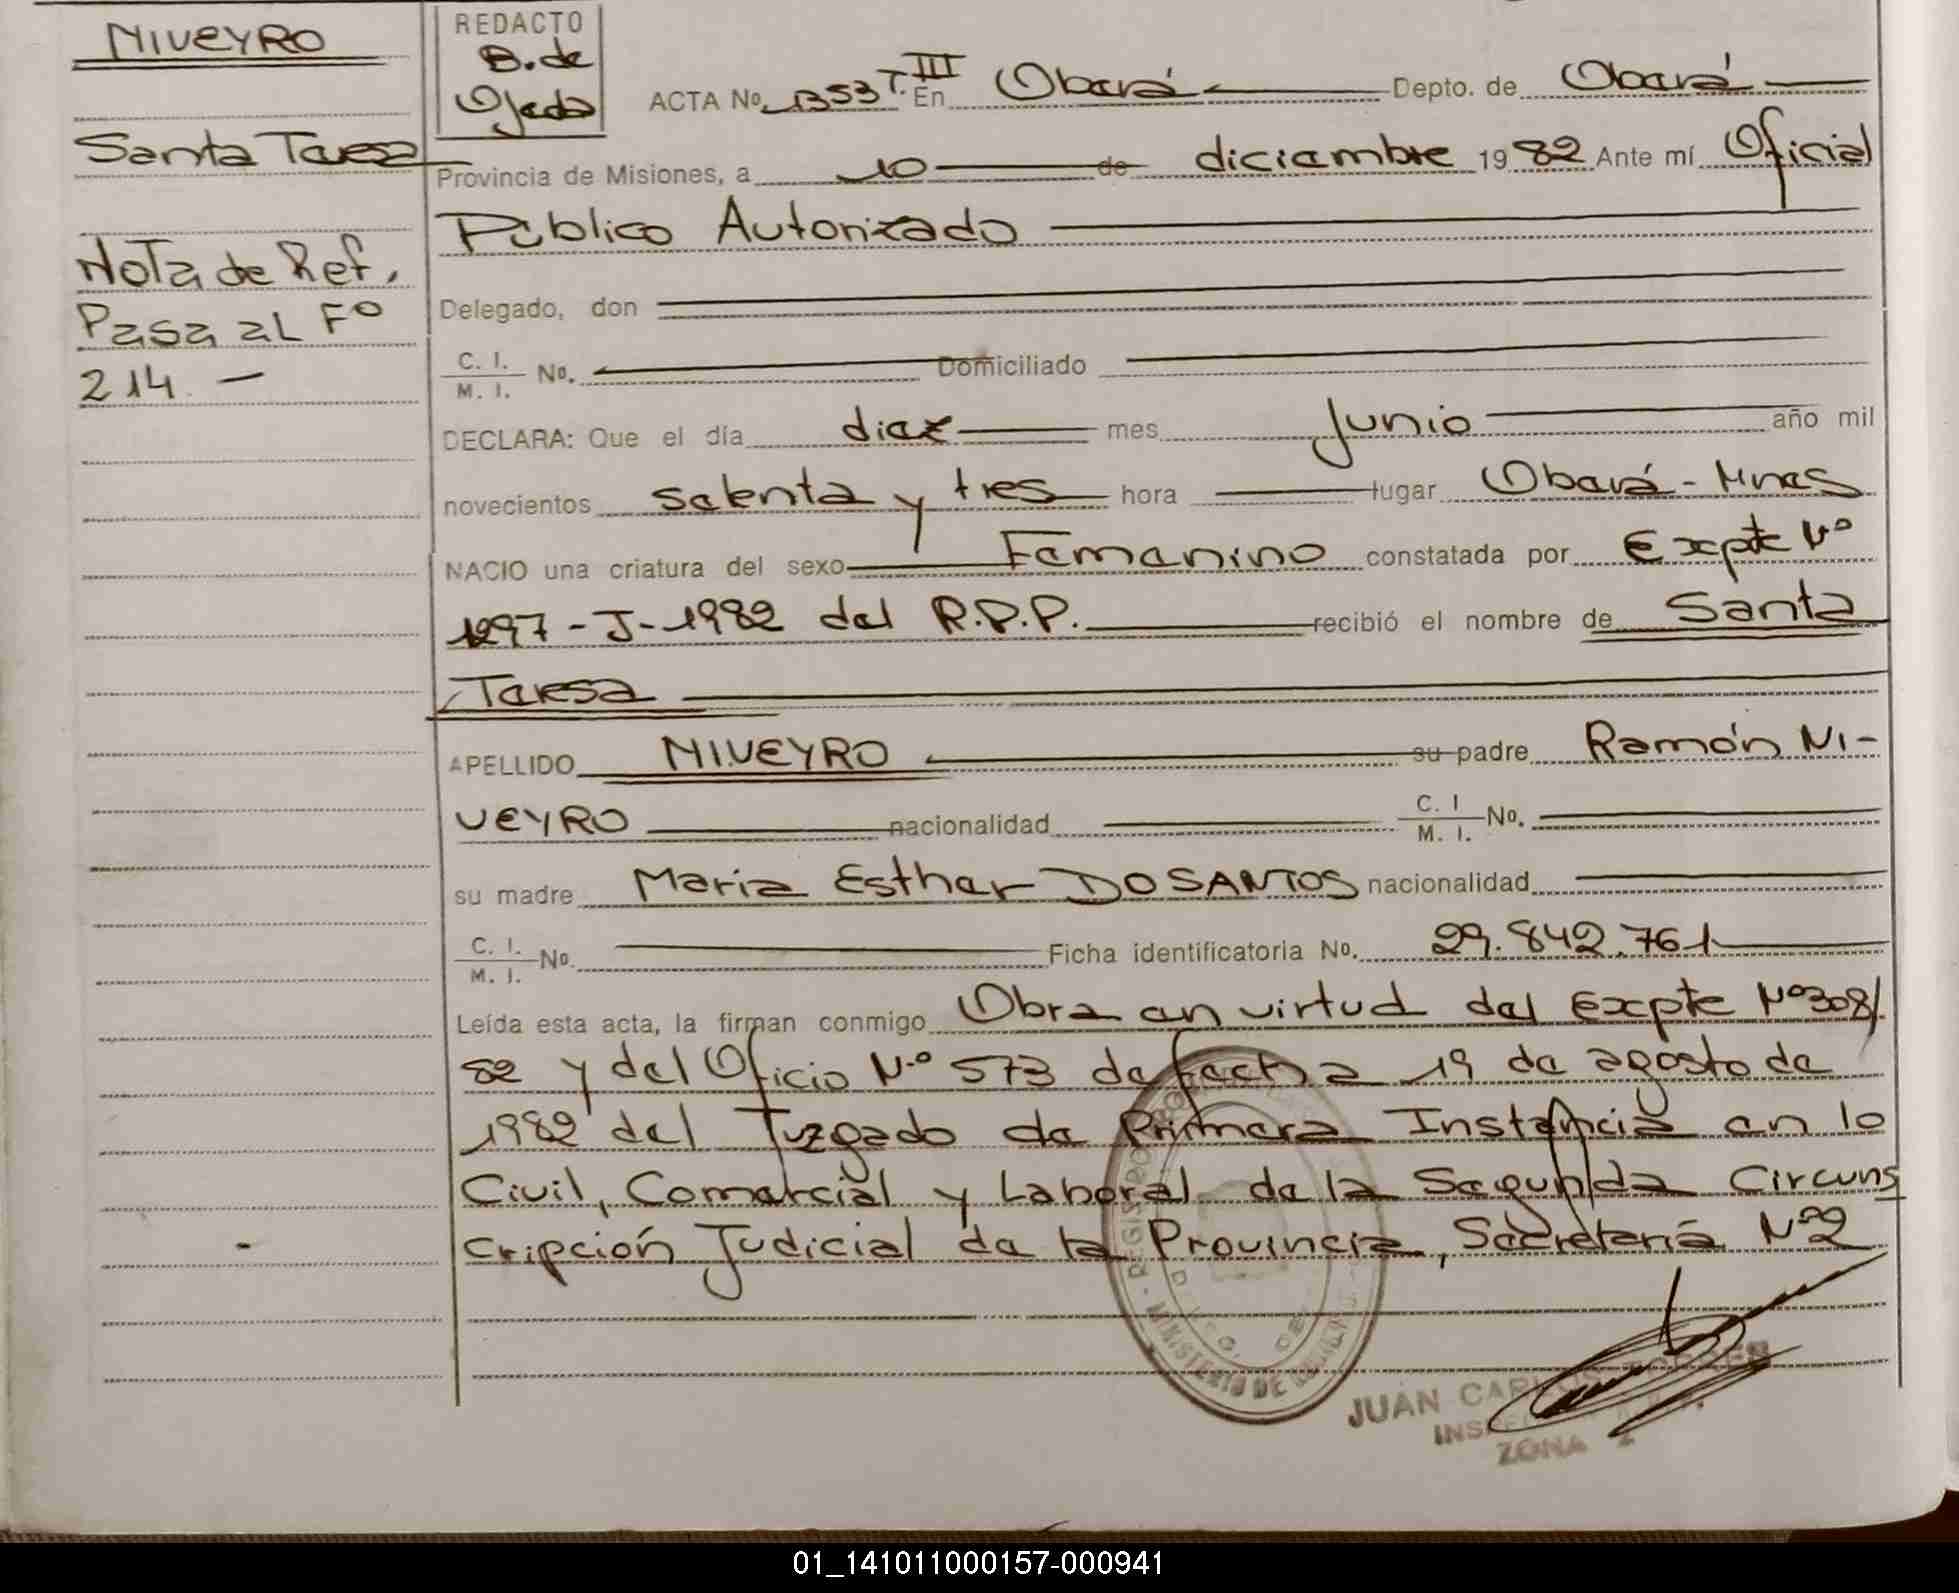 NIVEYRO
Santa Teresa
Nota de Ref.
Pasa al Fº
214.-
REDACTO
B. de
Ojeda
ACTA No. 1353 T. III En Oberá Depto. de Oberá
Provincia de Misiones, a 10 de diciembre 1982 Ante mí Oficial
Público Autorizado
Delegado, don
C. I.
M. I. No. Domiciliado
DECLARA: Que el día diez mes Junio año mil
novecientos setenta y tres hora lugar Oberá - Mnes
NACIO una criatura del sexo Femenino constatada por Expte Nº
1297-J-1982 del R.P.P. recibió el nombre de Santa
Teresa
APELLIDO NIVEYRO su padre Ramón NI-
VEYRO nacionalidad C. I
M. I. No.
su madre Maria Esther DOSANTOS nacionalidad
C. I.
M. I. No. Ficha identificatoria No. 29.842.761
Leída esta acta, la firman conmigo Obra en virtud del Expte Nº 308/
82 y del Oficio Nº 573 de fecha 19 de agosto de
1982 del Juzgado de Primera Instancia en lo
Civil, Comercial y Laboral de la Segunda Circuns
cripción Judicial de la Provincia, Secretaría Nº 2
MINISTERIO DE
JUAN CARLOS
ZONA
01_141011000157-000941